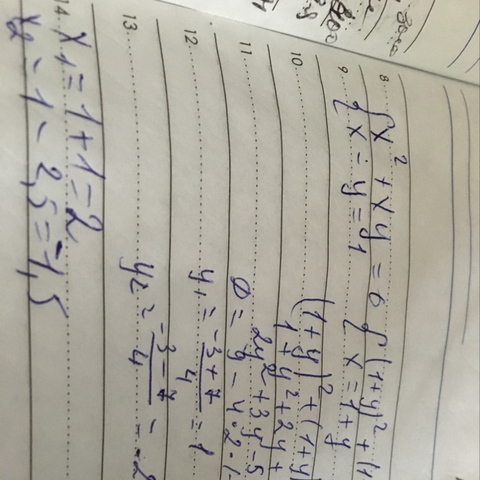 8
{x² + xy = 6 {(1+y)² + (1
9
{x - y = 1 { x = 1 + y
10
(1+y)² + (1+y)
1 + y² + 2y +
11
2y² + 3y - 5
D = 9 - 4·2·(-
12
y₁ = -3+7/4 = 1
13
y₂ = -3-7/4 = -2
14
x₁ = 1+1 = 2
x₂ = 1 - 2,5 = -1,5